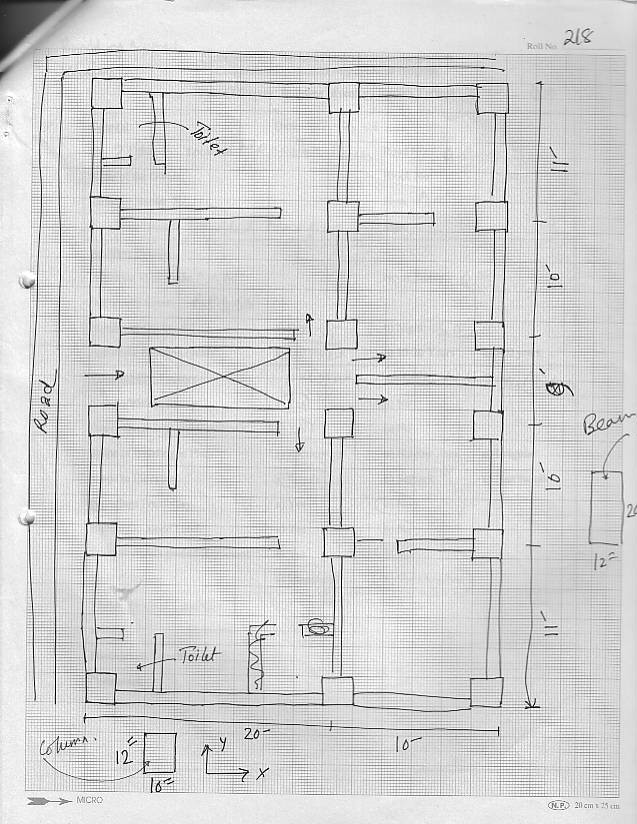 Roll No. 218
Toilet
11'
10'
Road
Beam
10'
12"
11'
Toilet
20'
10'
Column.
12"
10"
Y
X
MICRO
N.P. 20 cm x 25 cm